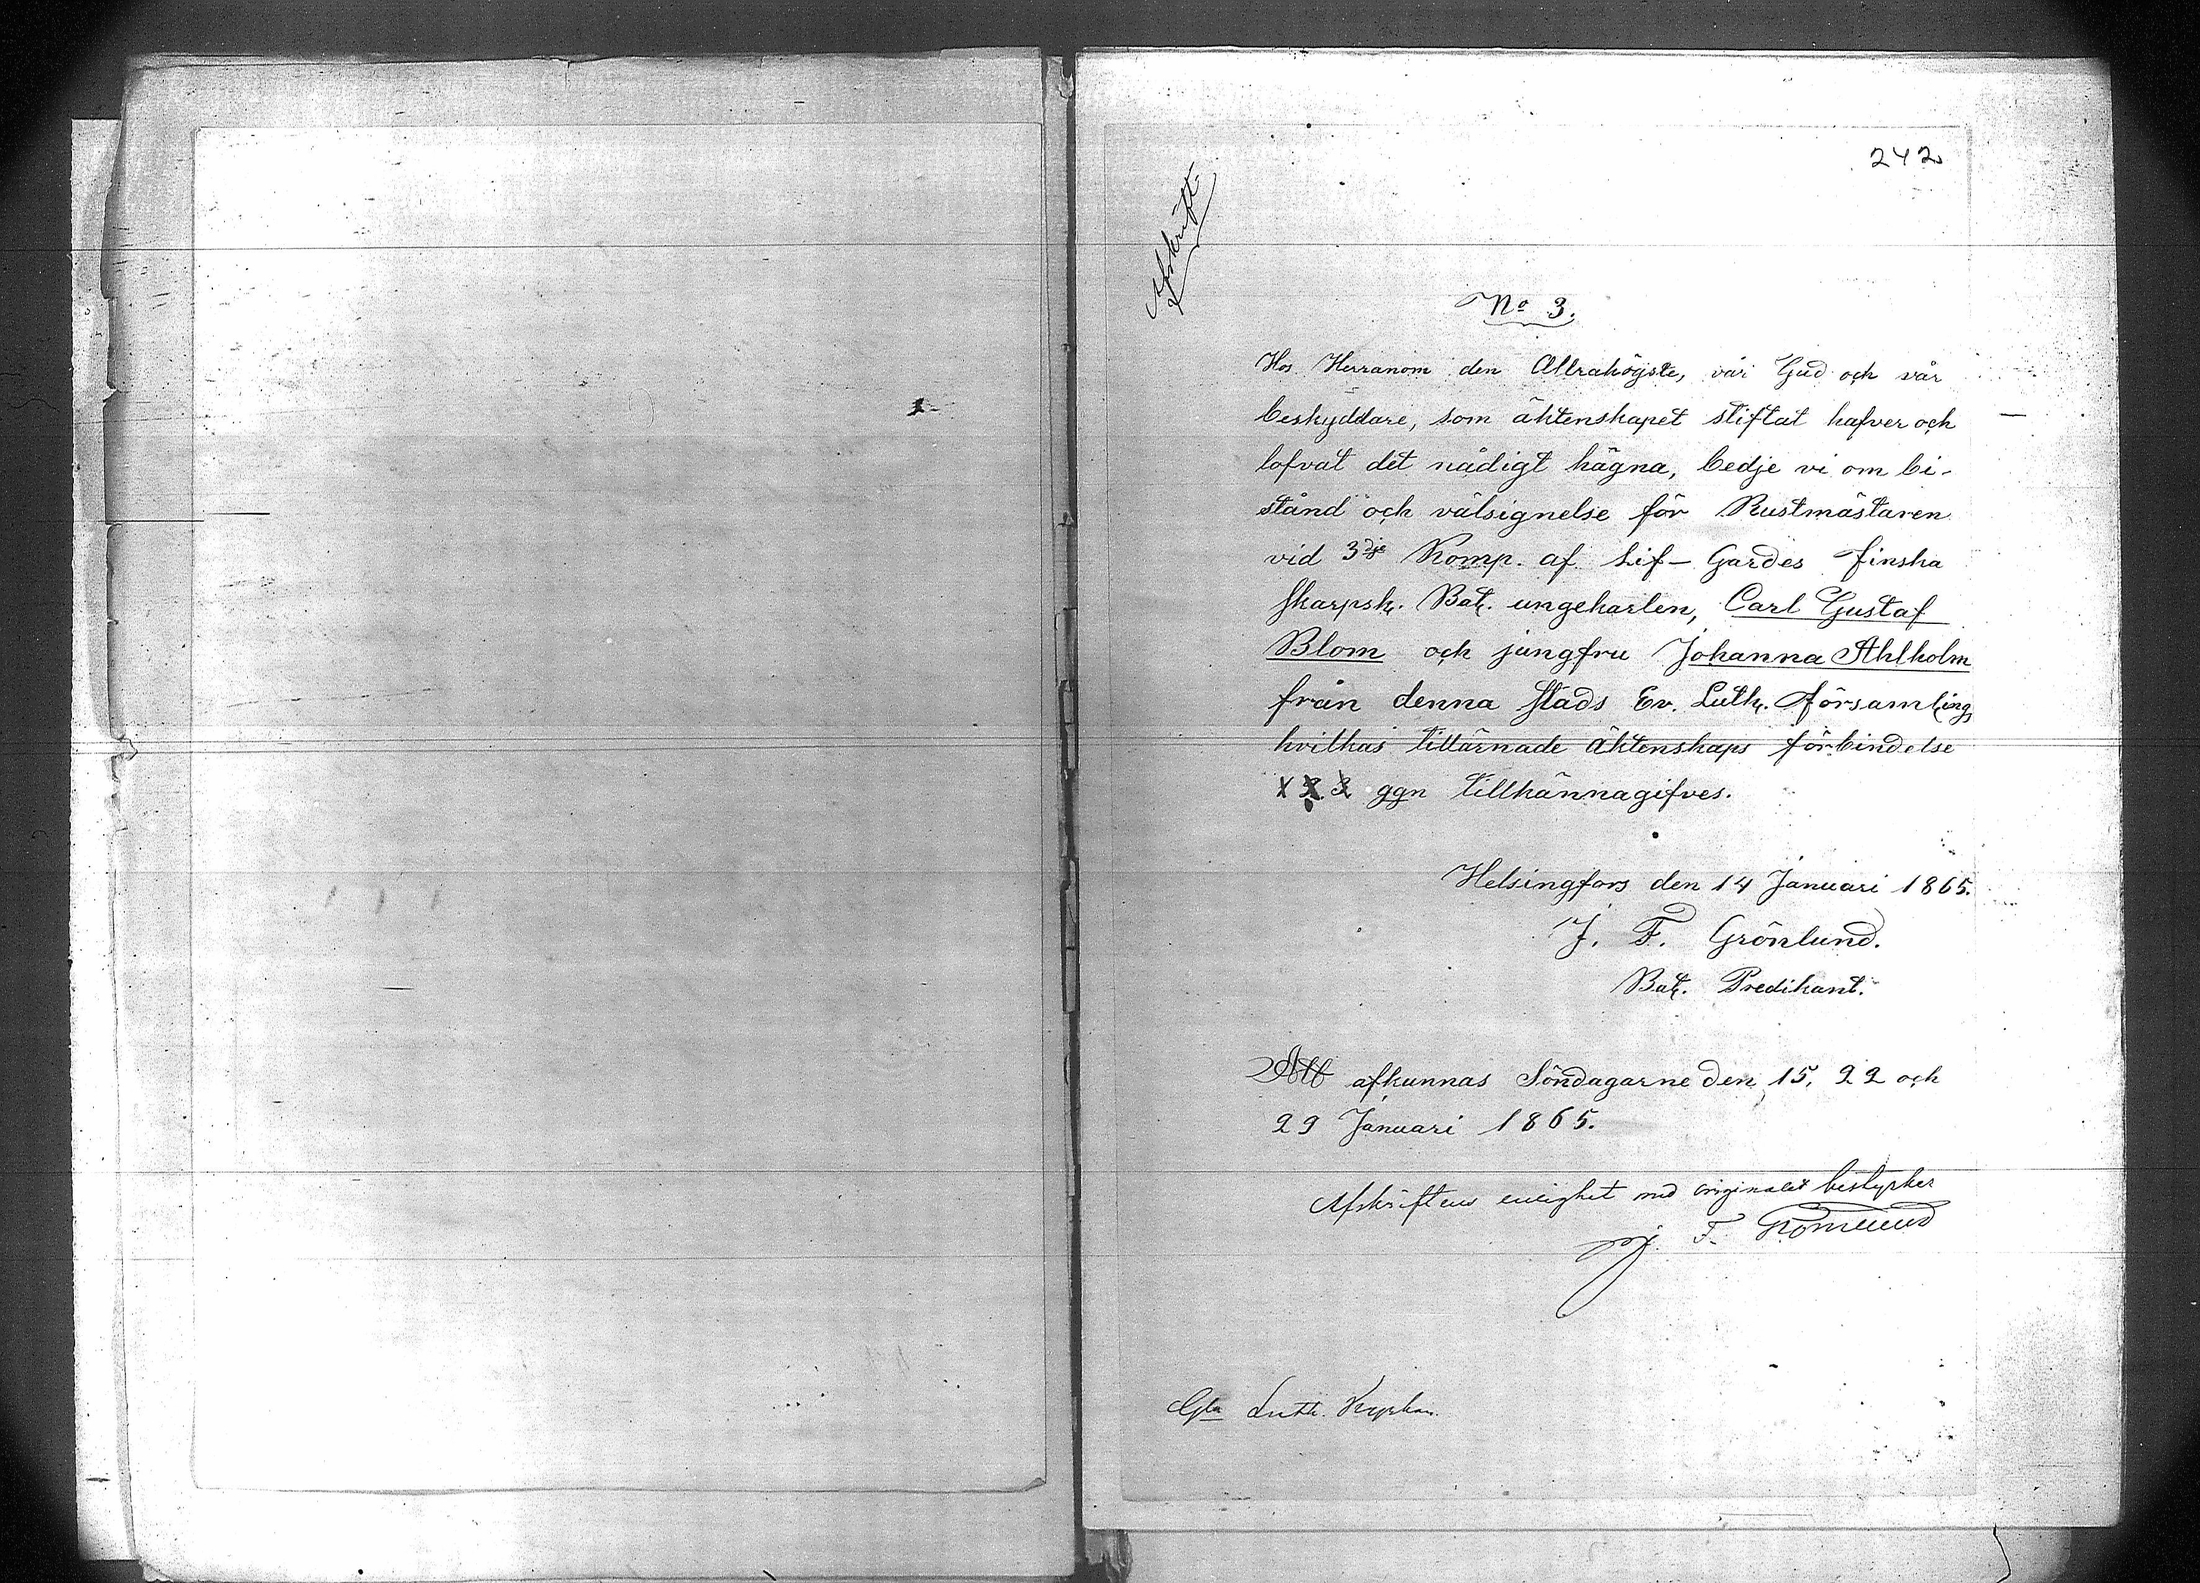 242
Afskrift.
No 3.
Hos Herranom den Allrahögste, vår Gud och vår
beskyddare, som äktenskapet stiftat hafver och
lofvat det nådigt hägna, bedje vi om bi-
stånd och välsignelse för Rustmästaren
vid 3dje Komp. af Lif-Gardes Finska
Skarpsk. Bat. ungekarlen, Carl Gustaf
Blom och jungfru Johanna Ahlholm
från denna Stads Ev. Luth. församling,
hvilkas tillärnade äktenskaps förbindelse
1 2 3 ggn tillkännagifves.
Helsingfors den 14 Januari 1865.
J. F. Grönlund.
Bat. Predikant.
Att afkunnas Söndagarne den 15, 22 och
29 Januari 1865.
Afskriftens enighet med originalet bestyrker
J. F. Grönlund
Gla Luth. Kyrkan.